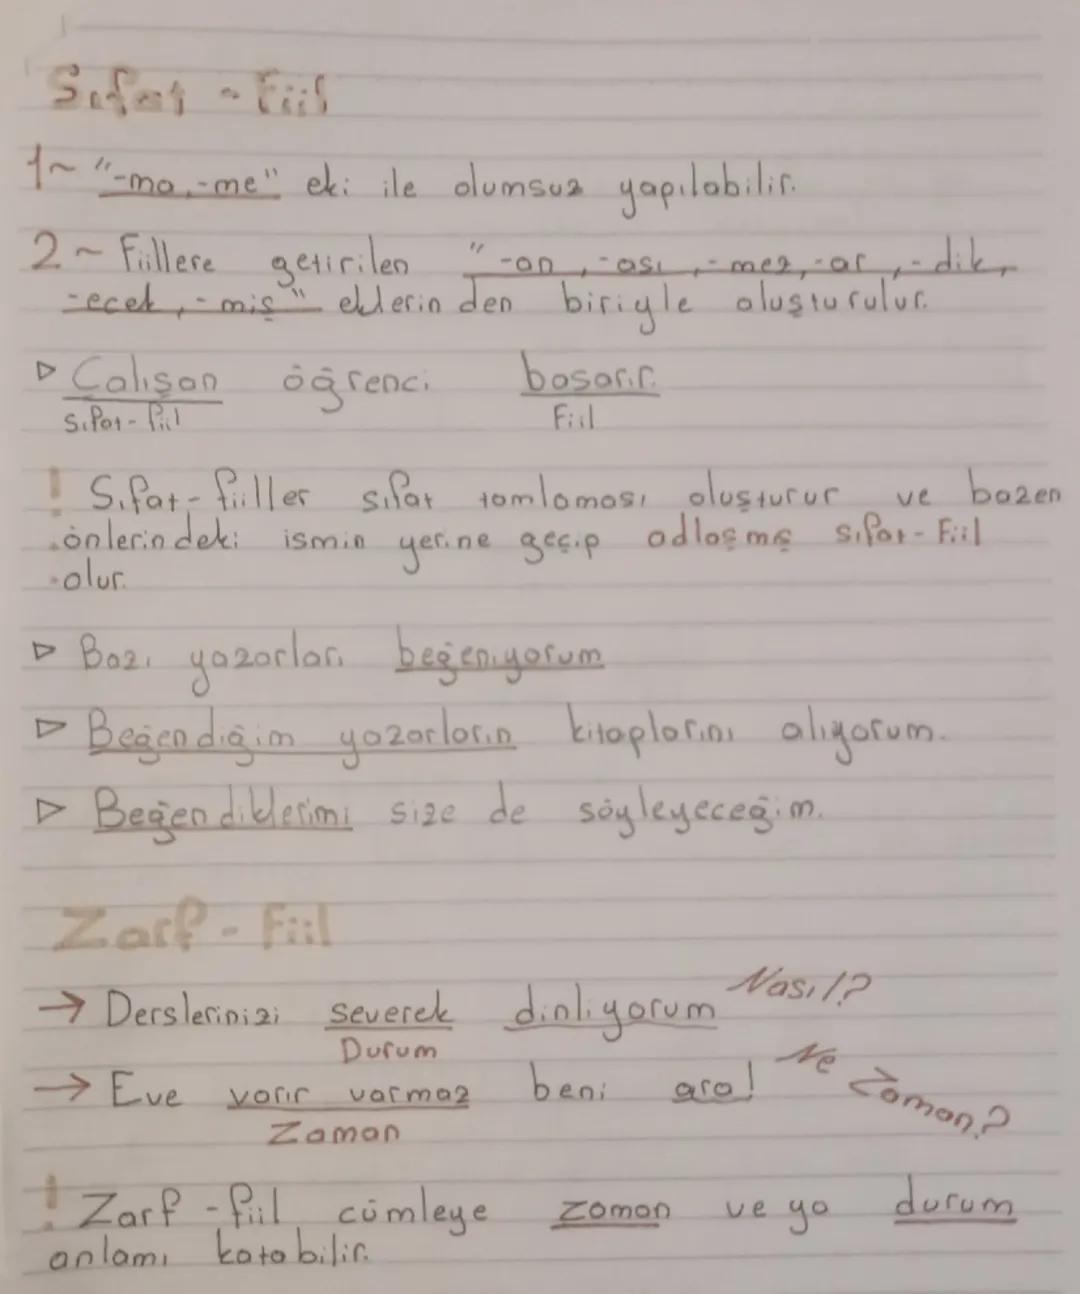 Sıfat - Fiil
1~ "-ma,-me" eki ile olumsuz yapılabilir.
2~ Fiillere getirilen "-an,-ası,-mez,-ar,-dik,
-ecek,-miş" eklerinden biriyle oluşturulur.
▷ Çalışan öğrenci başarır.
Sıfat-fiil Fiil
! Sıfat-fiiller sıfat tamlaması oluşturur ve bazen
önlerindeki ismin yerine geçip adlaşmış sıfat-Fiil
olur.
▷ Bazı yazarları beğeniyorum
▷ Beğendiğim yazarların kitaplarını alıyorum.
▷ Beğendiklerimi size de söyleyeceğim.
Zarf - Fiil
→ Derslerinizi severek dinliyorum Nasıl?
Durum
→ Eve varır varmaz beni ara! Ne Zaman?
Zaman
! Zarf-fiil cümleye zaman ve ya durum
anlamı katabilir.